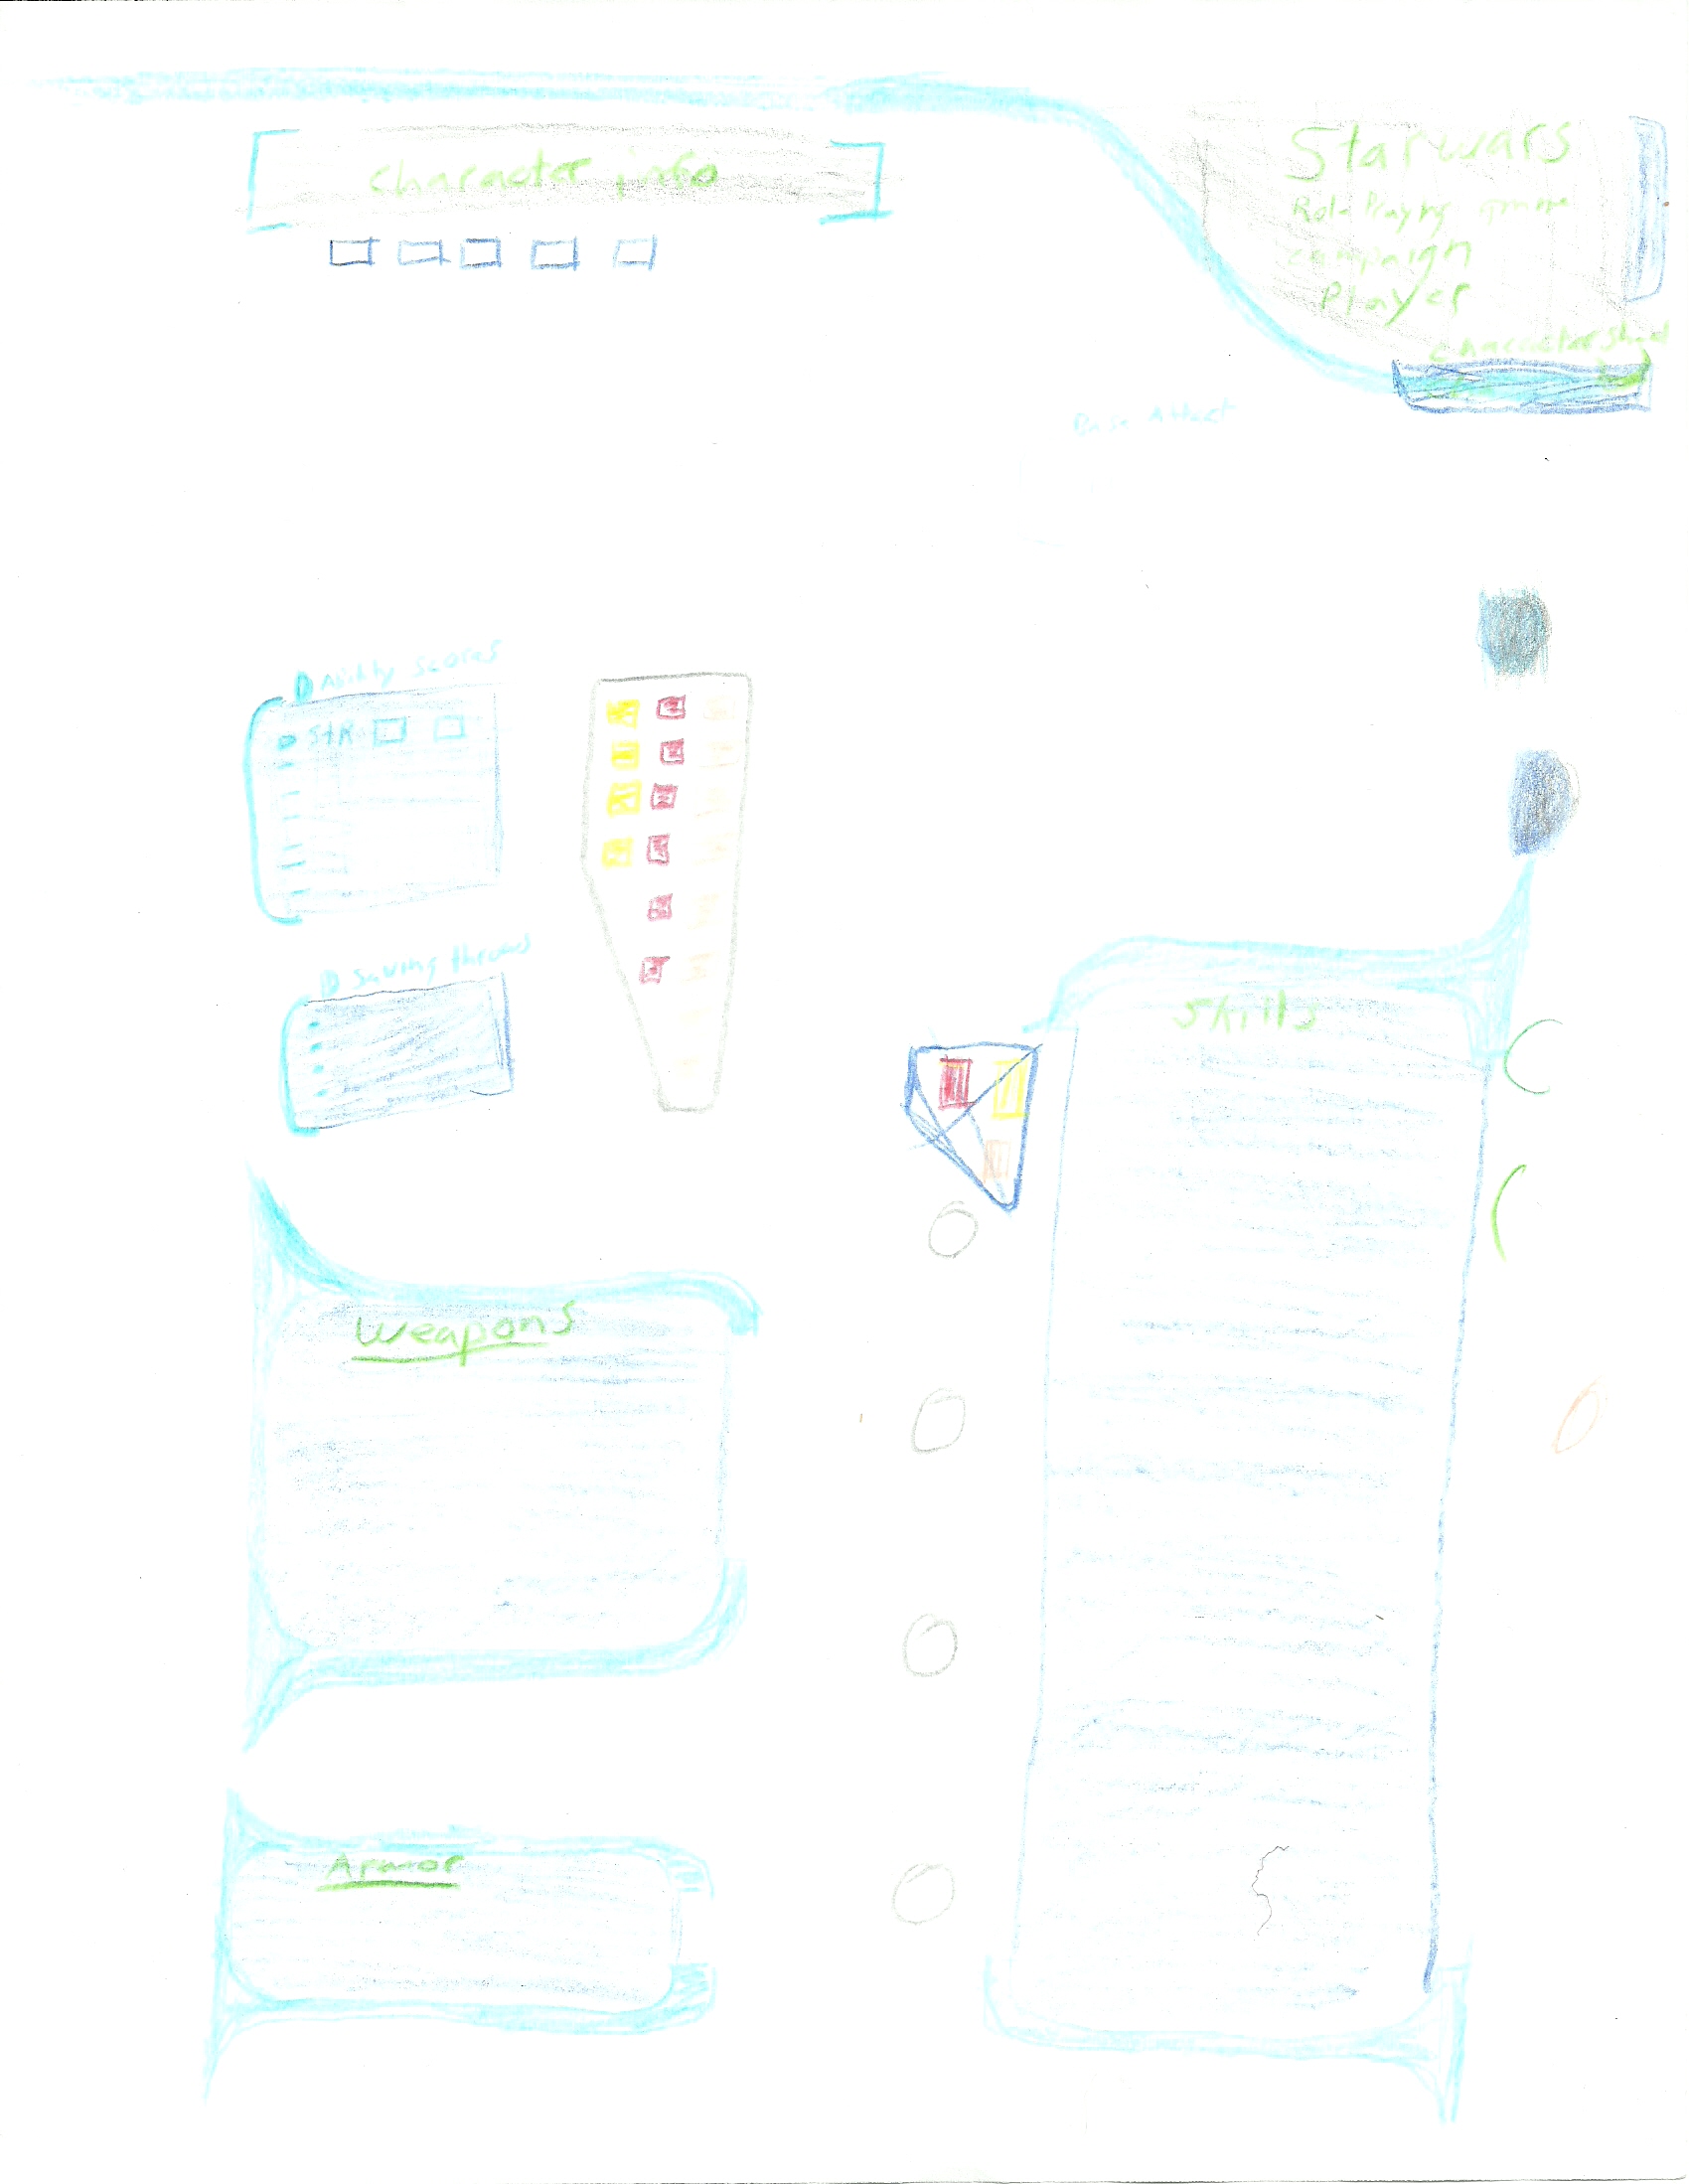 Character info
Starwars
Role Playing game
campaign
Player
character sheet
Base Attack
Ability Scores
STR
Saving throws
Skills
Weapons
Armor